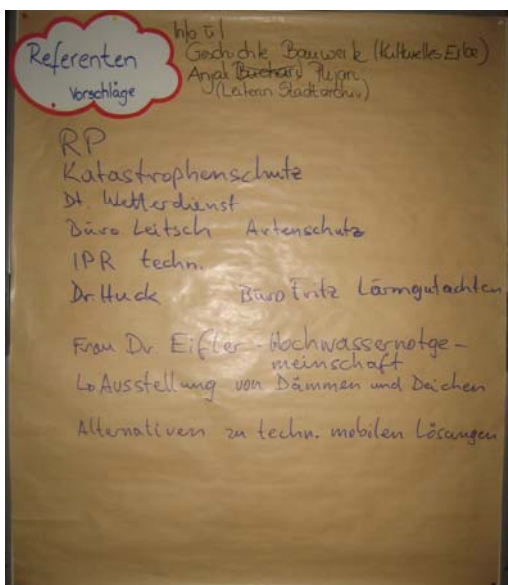 Referenten
Vorschläge
Info ü!
Geschichte Bauwerk (Kulturelles Erbe)
Anjali
(Leiterin Stadtarchiv)
RP
Katastrophenschutz
Dt. Wetterdienst
Büro Leitsch Artenschutz
IPR techn.
Dr. Huck Büro Fritz Lärmgutachten
Frau Dr. Eifler - Hochwassernotge-
meinschaft
↳ Ausstellung von Dämmen und Deichen
Alternativen zu techn. mobilen Lösungen